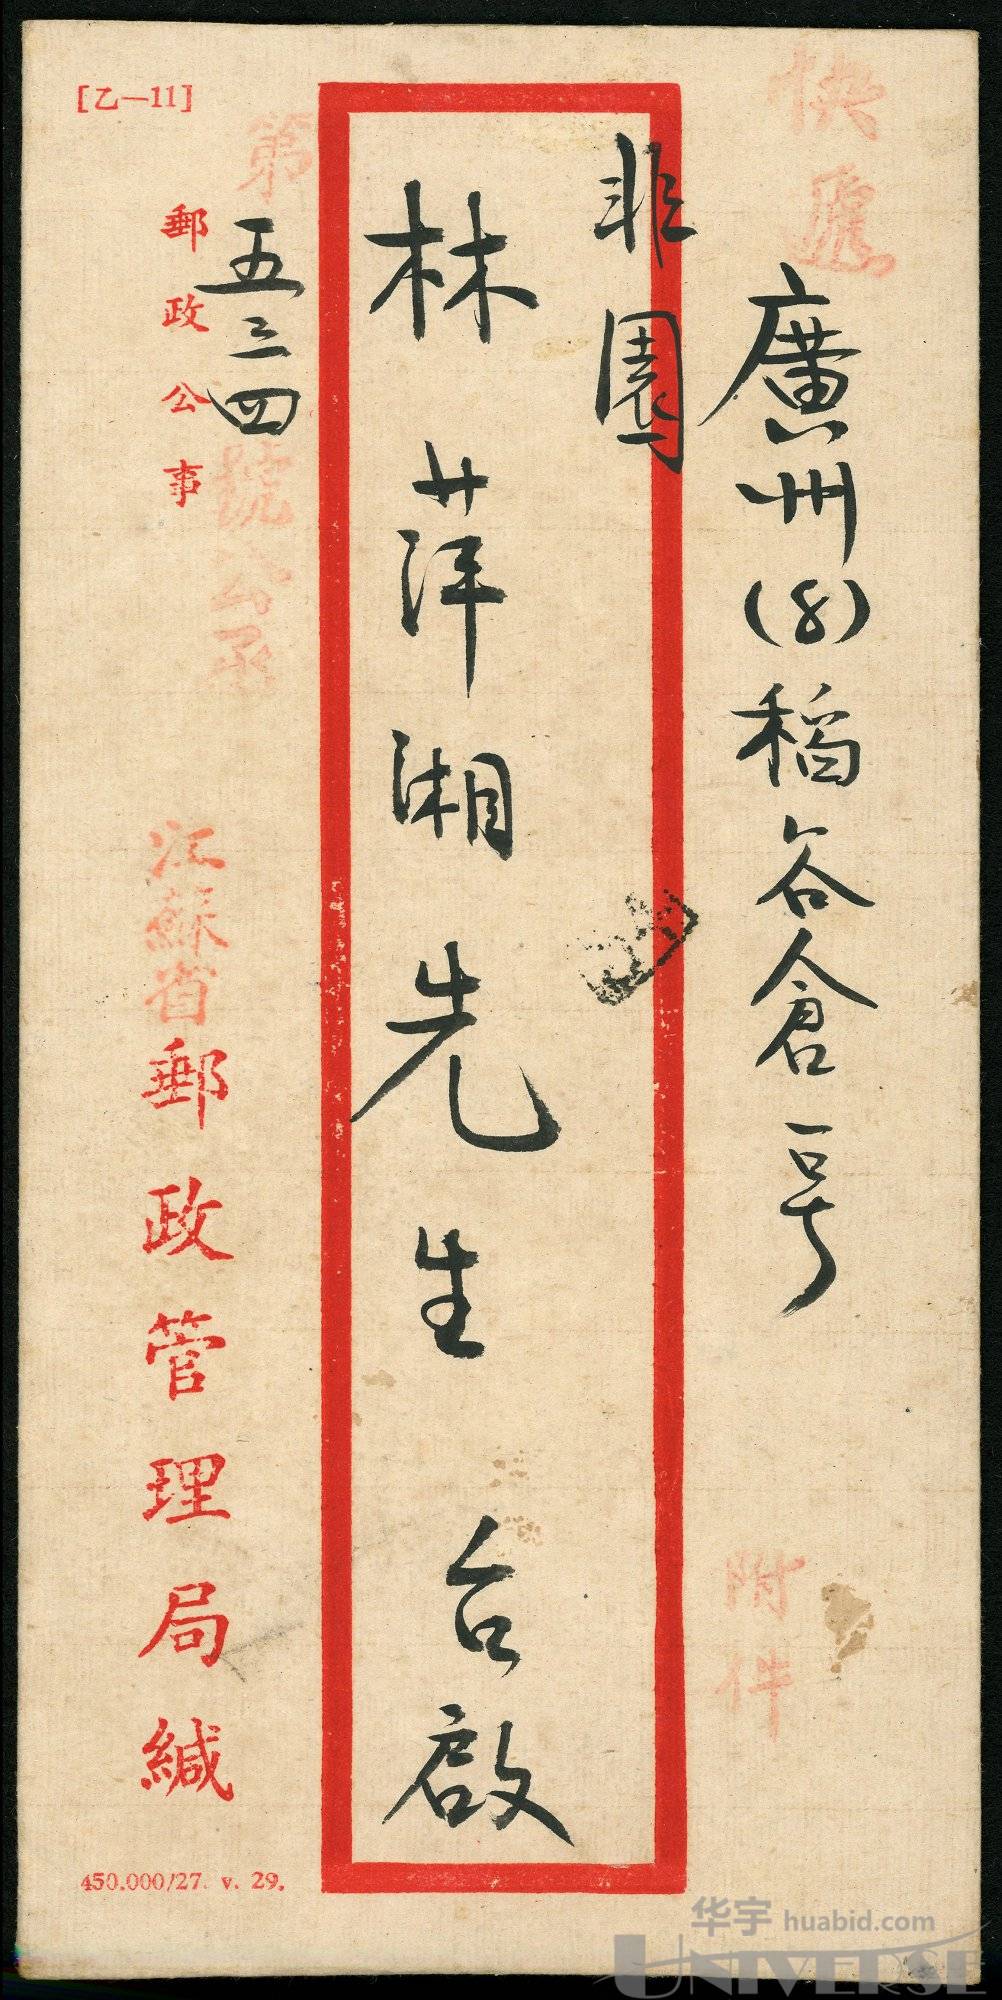 快遞
廣州(8)稻谷倉一号
非園
林萍湘先生台啟
第五三四號公函
郵政公事
江蘇省郵政管理局緘
[乙—11]
附件
450.000/27. v. 29.
华宇 huabid.com
UNIVERSE